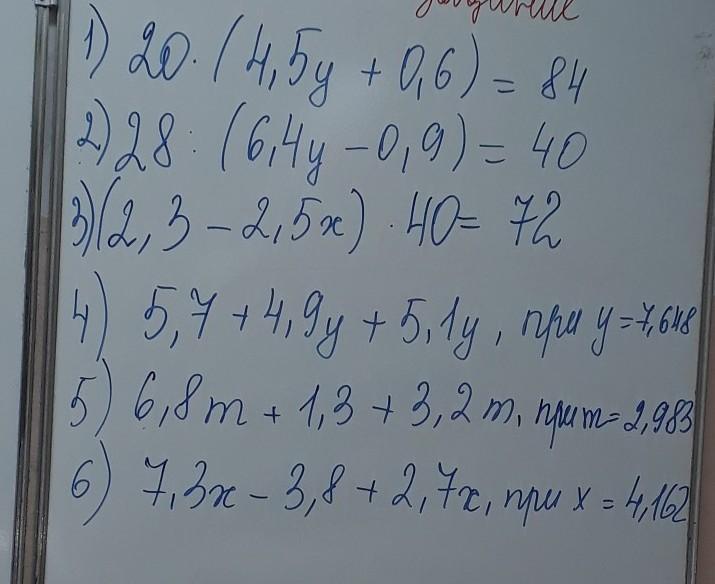 1) 20 · (4,5y + 0,6) = 84
2) 28 : (6,4y - 0,9) = 40
3) (2,3 - 2,5x) · 40 = 72
4) 5,7 + 4,9y + 5,1y, при y = 7,648
5) 6,8m + 1,3 + 3,2m, при m = 2,983
6) 7,3x - 3,8 + 2,7x, при x = 4,162